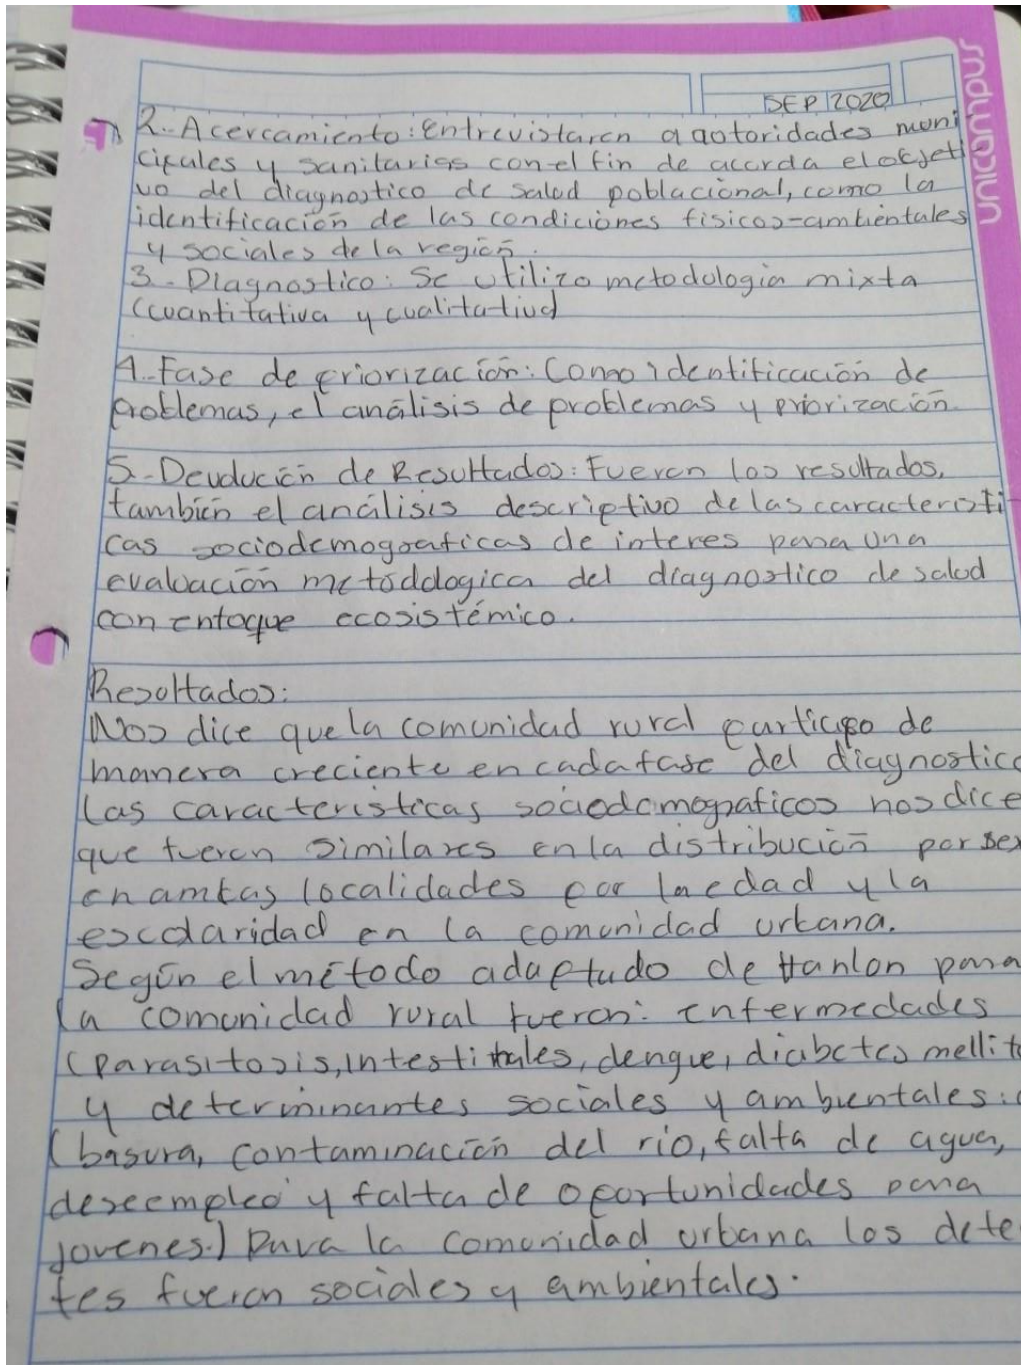 unicampus
SEP 2020
2.- Acercamiento: Entrevistaron a autoridades muni
cipales y sanitarias con el fin de acorda el objeti-
vo del diagnostico de salud poblacional, como la
identificación de las condiciones fisicos-ambientales
y sociales de la región.
3.- Diagnostico: Se utilizo metodologia mixta
(cuantitativa y cualitativa)
4.- Fase de priorización: Como identificación de
problemas, el análisis de problemas y priorización.
5.- Devolución de Resultados: Fueron los resultados,
también el análisis descriptivo de las caracteristi-
cas sociodemograficas de interes para una
evaluación metodologica del diagnostico de salud
con enfoque ecosistémico.
Resultados:
Nos dice que la comunidad rural participo de
manera creciente en cada fase del diagnostico
Las caracteristicas sociodemograficos nos dice
que fueron similares en la distribución por sex
en ambas localidades por la edad y la
escolaridad en la comunidad urbana.
Según el método adaptado de Hanlon para
la comunidad rural fueron: enfermedades
(parasitosis, intestinales, dengue, diabetes mellito
y determinantes sociales y ambientales:
(basura, contaminación del rio, falta de agua,
desempleo y falta de oportunidades para
jovenes.) Para la comunidad urbana los dete
tes fueron sociales y ambientales.